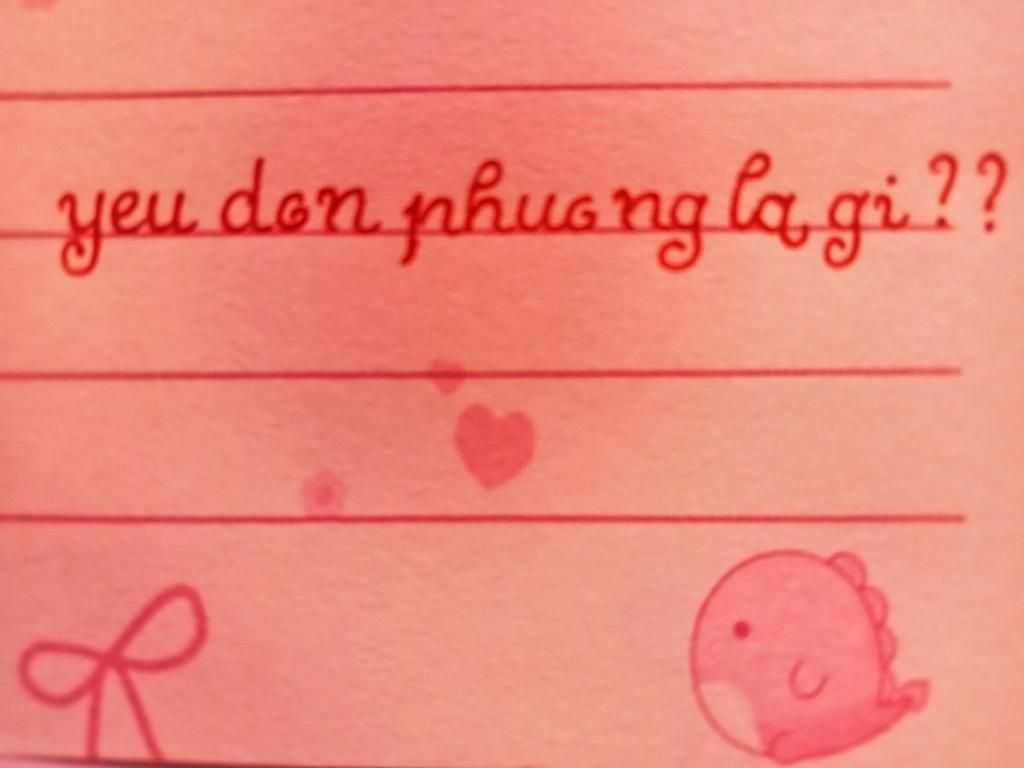 yeu don phuong la gi??